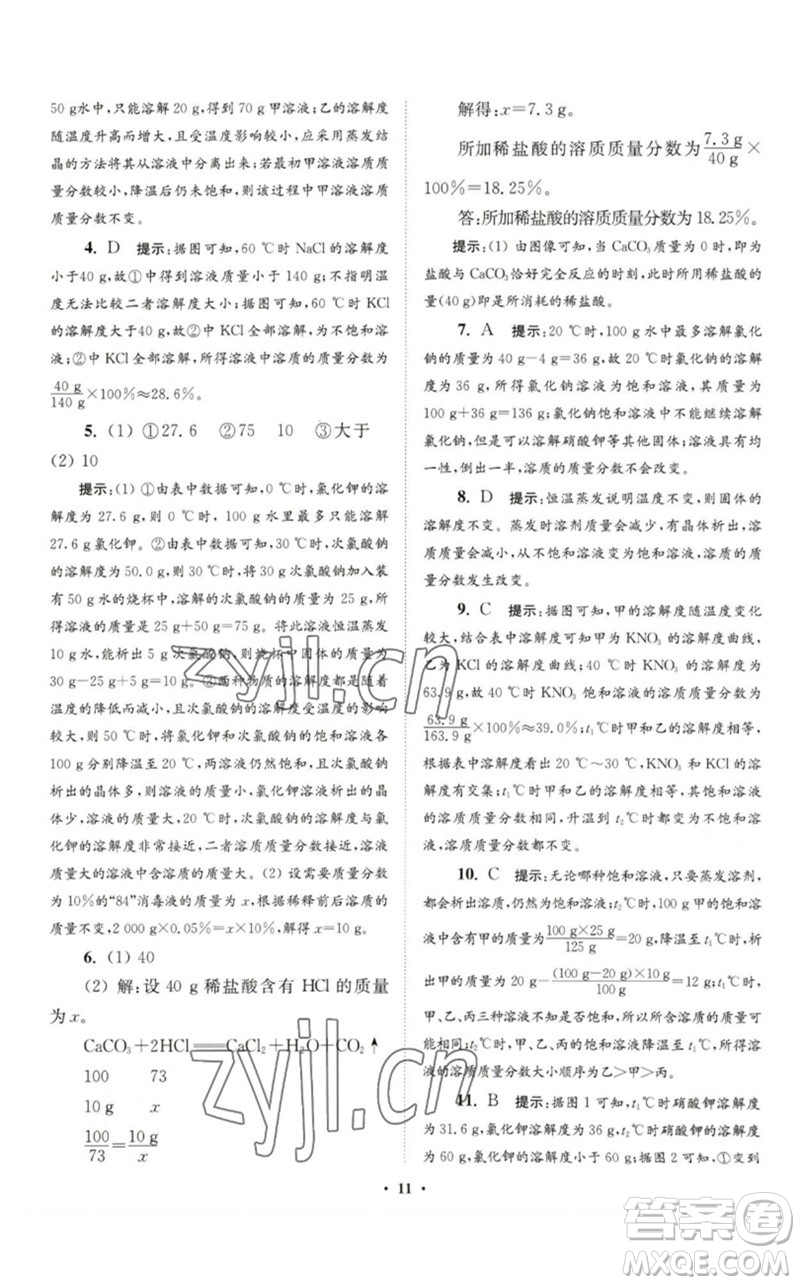 50 g水中,只能溶解 20 g,得到 70 g甲溶液;乙的溶解度
随温度升高而增大,且受温度影响较小,应采用蒸发结
晶的方法将溶液进行分离出来。若最初甲溶液溶质质
量分数较小,降温后仍未饱和,则该过程中甲溶液溶质
质量分数不变。
4. D 提示:据图可知,60 ℃时 NaCl 的溶解度
小于40 g,故①中溶液的质量小于 140 g;不指明温
度无法比较二者溶解度大小;据图可知,60 ℃时 KCl
的溶解度大于40 g,故①不饱和溶液,②可能为饱和溶
液;②中 KCl 全部溶解,所得溶液的溶质质量分数为
40 g/140 g×100%≈28.6%。
5. (1) ①27.6 ②75 10 ③大于
(2) 10
提示:(1) ①由表中数据可知,0 ℃时,氯化钾的溶
解度为 27.6 g,即 0 ℃时,100 g 水里最多只能溶解
27.6 g氯化钾。②由表中数据可知,30 ℃时,次氯酸钠
的溶解度为 50.0 g,则 30 ℃时,将 30 g 次氯酸钠加入装
有 50 g水的烧杯中,溶解的质量为 25 g,所得溶液的
质量为 25 g+50 g=75 g。将此溶液恒温蒸发
10 g水,能析出 5 g 次氯酸钠,则烧杯中固体的质量为
30 g-25 g+5 g=10 g。③两种物质的溶解度都随温
度的降低而减小,且次氯酸钠的溶解度受温度的影响
较大,则 50 ℃时,将次氯酸钠和氯化钾的饱和溶液各
100 g分别降温至 20 ℃,两溶液仍然饱和,且次氯酸钠
析出的晶体多,则溶液的质量小,氯化钾析出的
晶体少,溶液的质量大,20 ℃时,次氯酸钠的溶解度与
氯化钾的溶解度非常接近,二者溶质质量分数接近,溶液
质量大的溶液中含溶质的质量大。(2) 设需要质量分
数为10%的“84”消毒液的质量为x,根据稀释前后溶质的
质量不变,2 000 g×0.05%=x×10%,解得x=10 g。
6. (1) 40
(2) 解:设 40 g 稀盐酸含有 HCl 的质量
为x。
CaCO₃+2HCl══CaCl₂+H₂O+CO₂↑
100 73
10 g x
100/73=10 g/x
解得:x=7.3 g。
所加稀盐酸的溶质质量分数为7.3 g/40 g×
100%=18.25%。
答:所加稀盐酸的溶质质量分数为 18.25%。
提示:(1) 由图像可知,当 CaCO₃质量为 0 时,即为
盐酸与 CaCO₃恰好完全反应的时刻,此时所用稀盐酸的
量(40 g)即是所消耗的稀盐酸。
7. A 提示:20 ℃时,100 g水中最多溶解氯化
钠的质量为 40 g-4 g=36 g,故 20 ℃时氯化钠的溶
解度为 36 g,所得氯化钠溶液为饱和溶液,其质量为
100 g+36 g=136 g;氯化钠溶液中不能继续溶解氯
化钠,但可以溶解硝酸钾等其他固体;溶液具有均
一性,倒出一半,溶质的质量分数不会改变。
8. D 提示:恒温蒸发说明温度不变。则固体的
溶解度不变。蒸发时溶剂质量会减少,有晶体析出,溶液
质量会减小,从不饱和溶液变为饱和溶液,溶质质量
分数发生改变。
9. C 提示:据图可知,甲的溶解度随温度变化
较大,结合表中溶解度可知甲为 KNO₃的溶解度曲线,
乙为 KCl 的溶解度曲线;40 ℃时 KNO₃的溶解度为
63.9 g,故 40 ℃时 KNO₃饱和溶液的溶质质量分数为
63.9 g/163.9 g×100%≈39.0%;t₁℃时甲和乙的溶解度相等,
根据表中溶解度看出 20 ℃~30 ℃,KNO₃和 KCl 的溶
解度有交集;t₁℃时甲和乙的溶解度相同,所以饱和溶
液的溶质质量分数相同,升温到t₂℃时都变为不饱和
溶液,溶质质量分数都不变。
10. C 提示:无论哪种饱和溶液,只要蒸发溶剂,
都会析出溶质,仍然为饱和溶液;t₂℃时,100 g甲的饱和溶
液含有甲的质量为100 g×25 g/125 g=20 g,降温至t₁℃时,析
出甲的质量为 20 g-(100 g-20 g)×10 g/100 g=12 g;t₂℃时,
甲、乙、丙三种溶液不知是否为饱和溶液,所以无法确
定溶质质量分数的大小关系;t₂℃时,甲、乙、丙的饱和
溶液分别降温至t₁℃时,甲、乙为饱和溶液,丙为不饱
和溶液,溶质质量分数大小顺序为乙>甲>丙。
11. B 提示:据图 1 可知,t₁℃时硝酸钾溶解度
为 31.6 g,t₂℃时氯化钾的溶解度为 36 g,t₂℃时硝酸钾
为 60 g,氯化钾的溶解度小于 60 g;据图 2 可知,①变到
• 11 •
zyjl.cn
zyjl.cn
答案圈
MXQE.COM